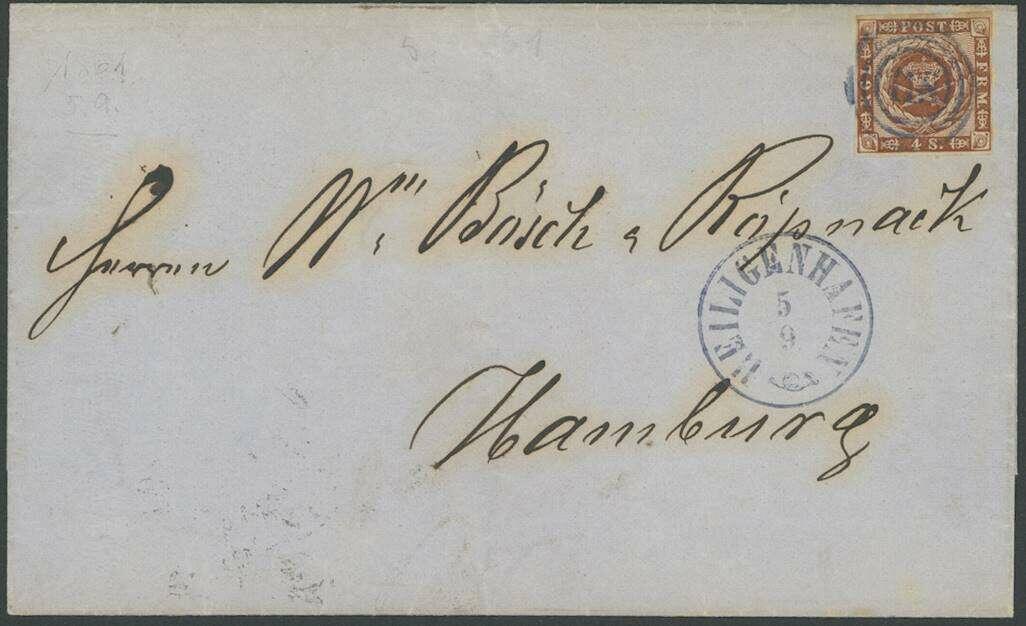 1861
5.9.
KGL POST FRM
4 S.
Herren Wm Bösch &
HEILIGENHAFEN
5
9
Hamburg